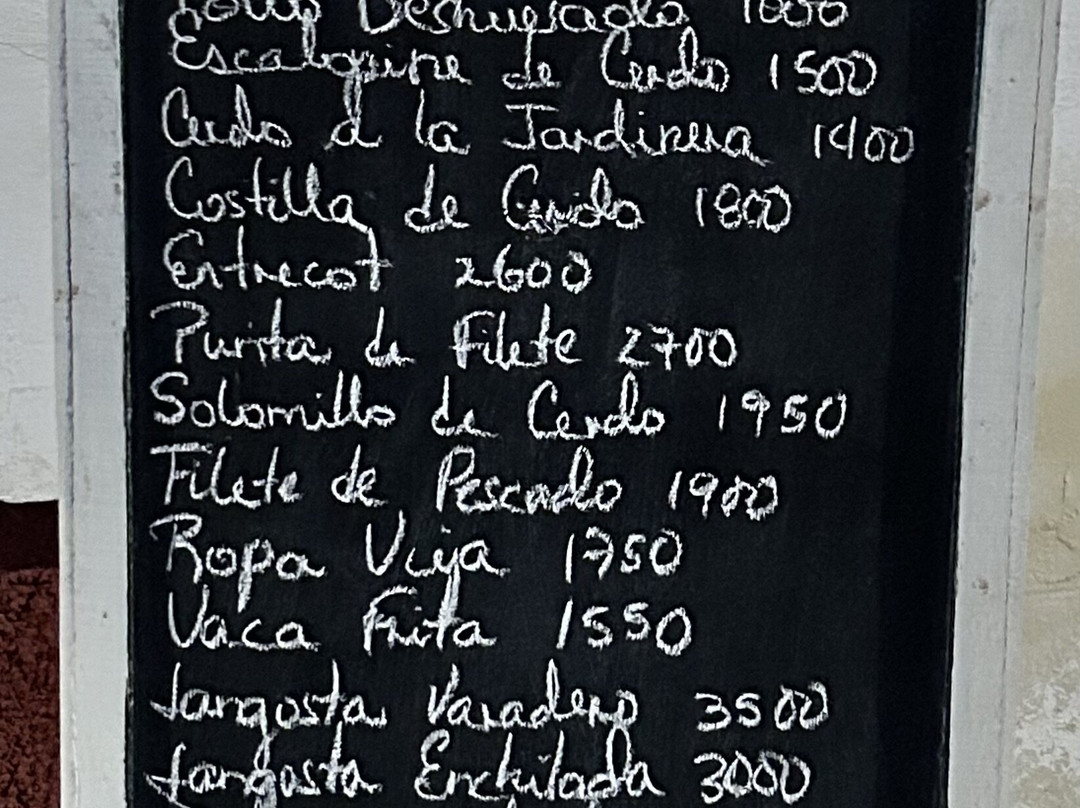 Deshuesado
Escalopine de Cerdo 1500
Cerdo a la Jardinera 1400
Costilla de Cerdo 1800
Entrecot 2600
Purita de Filete 2700
Solomillo de Cerdo 1950
Filete de Pescado 1900
Ropa Vieja 1750
Vaca Frita 1550
Langosta Varadero 3500
Langosta Enchilada 3000